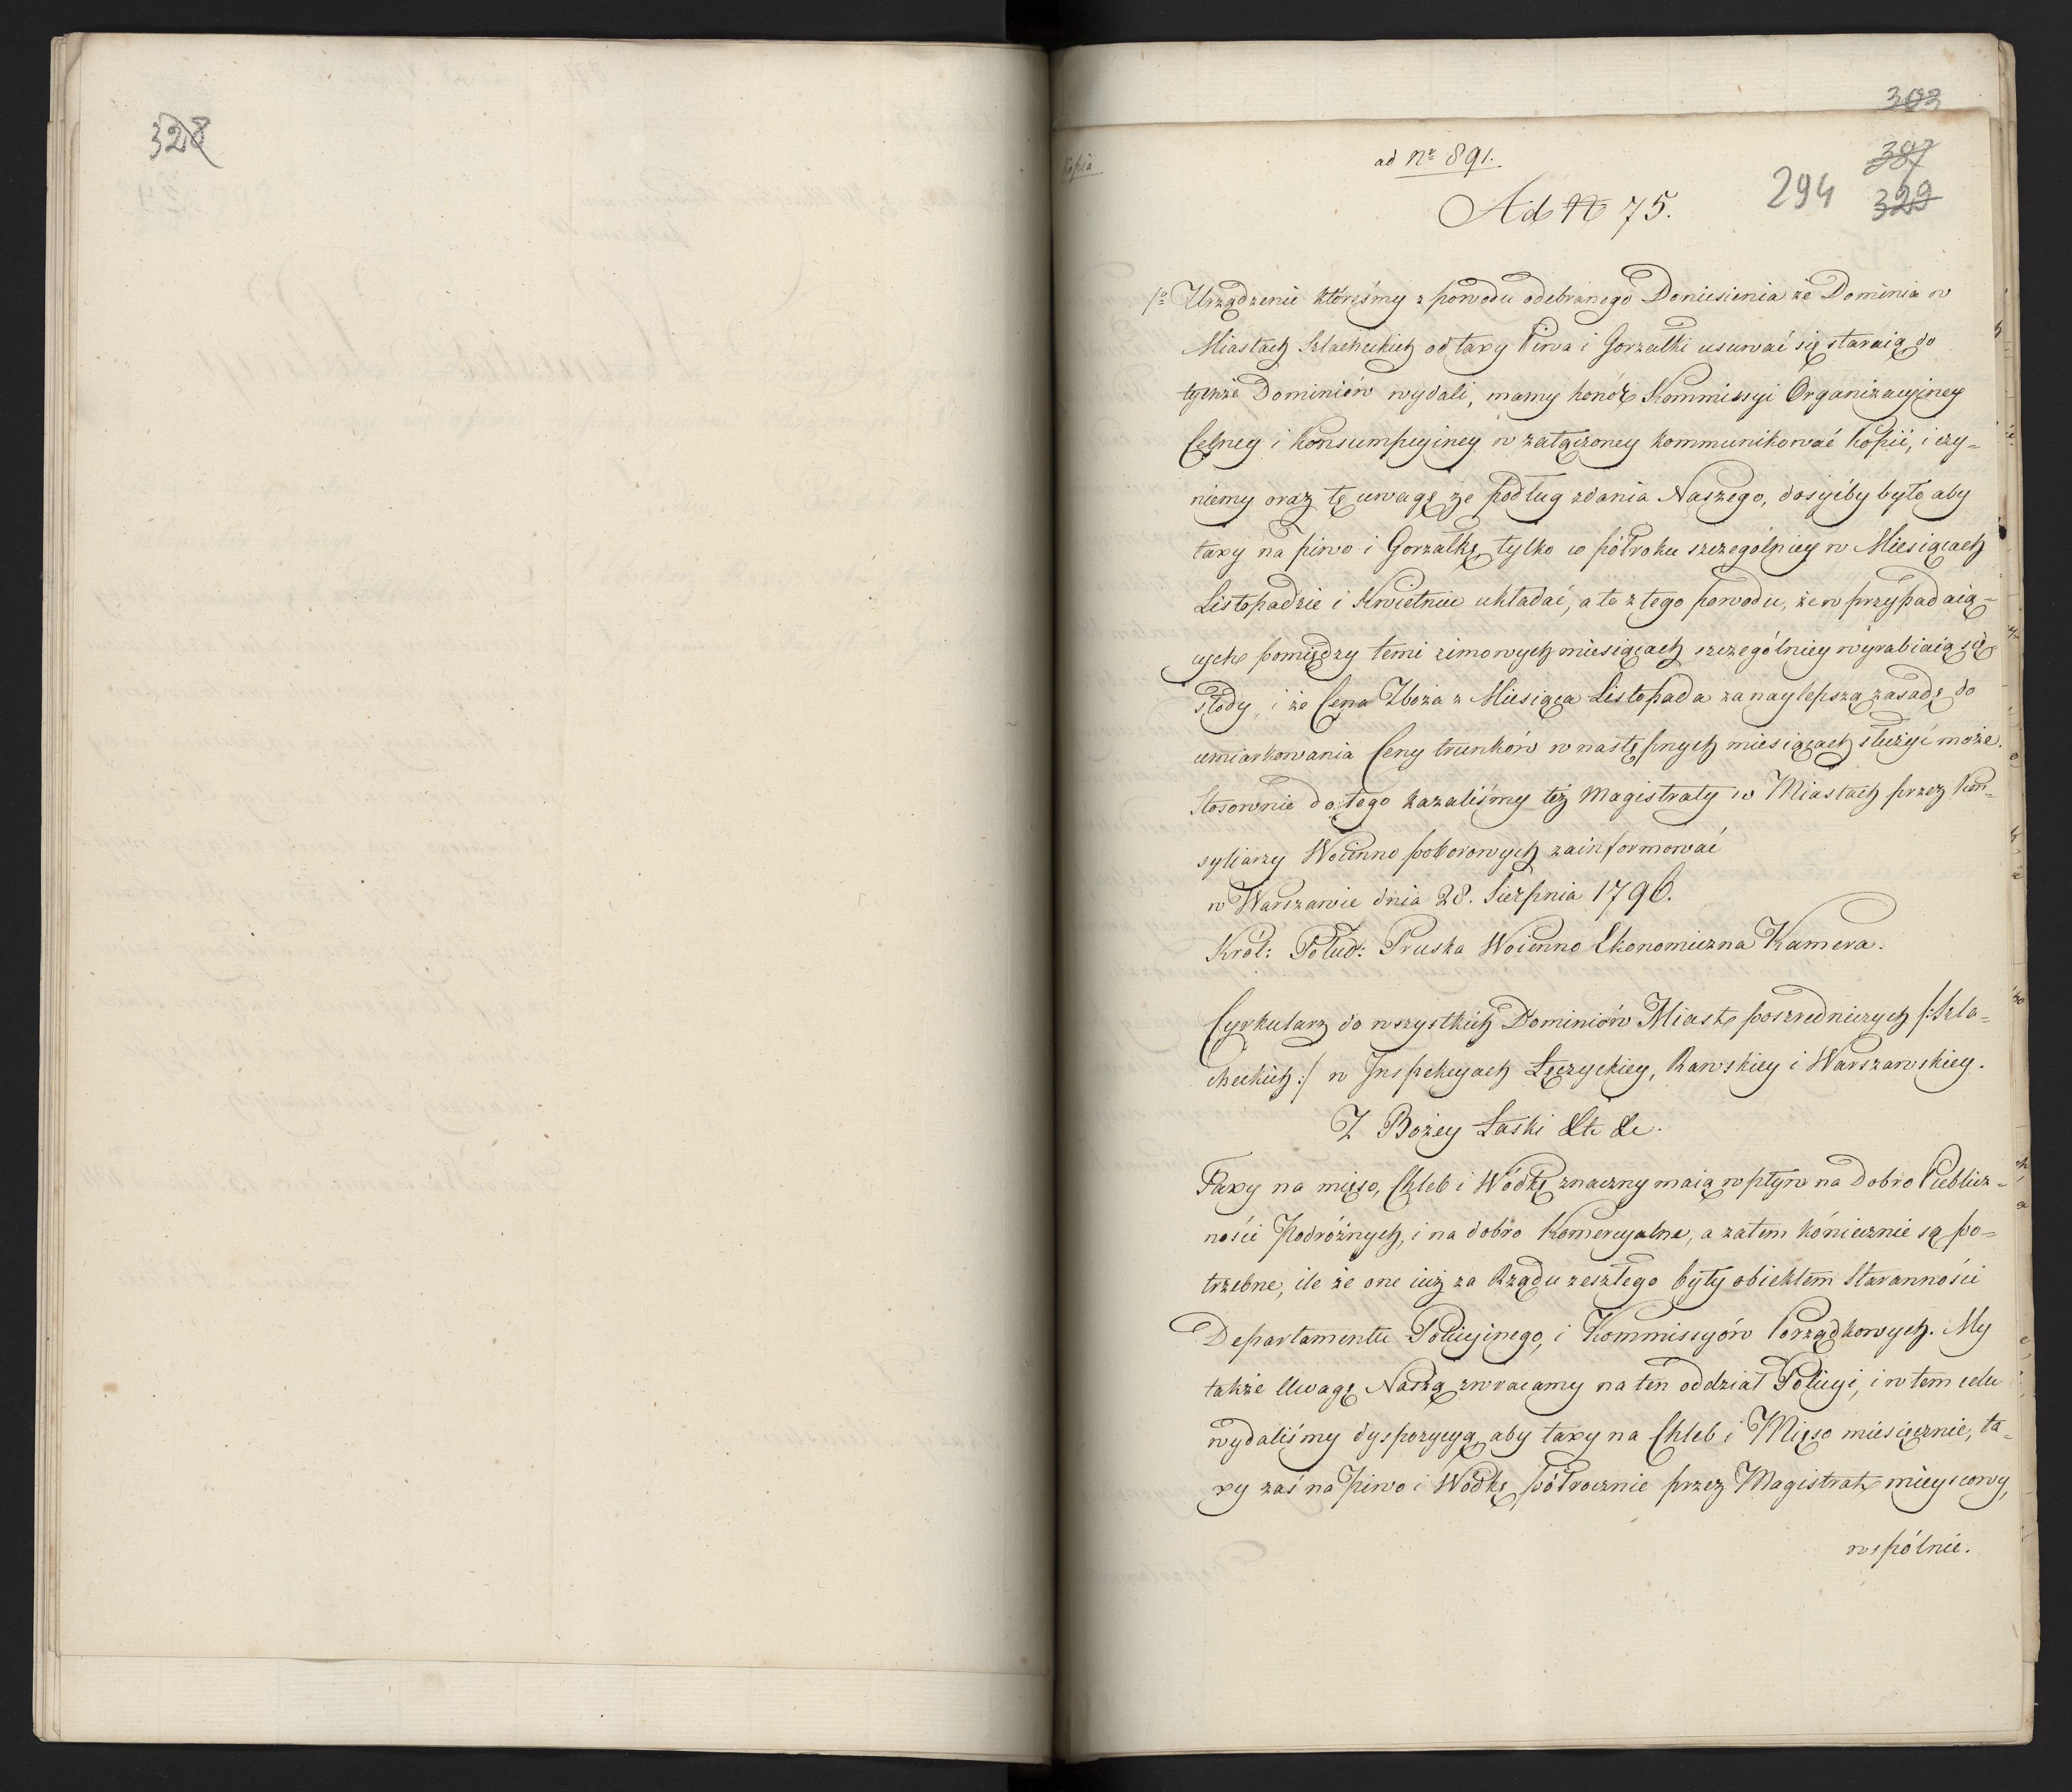 328
303
387
294 329
Kopia
ad Nr 891.
Ad N 75.
1o Urządzenie któreśmy z powodu odebranego Doniesienia że Dominia w
Miastach Szlacheckich od taxy Piwa i Gorzałki usuwać się staraią do
tychże Dominiów wydali, mamy honór Kommissyi Organizacyiney
Celney i Konsumpcyiney w załączoney kommunikować Kopii, i czy-
niemy oraz tę uwagę że podług zdania Naszego, dosyćby było aby
taxy na piwo i Gorzałkę tylko co półroku szczególniey w Miesiącach
Listopadzie i Kwietniu układać, a to z tego powodu, że w przypadaią-
cych pomiędzy temi zimowych miesiącach szczególniey wyrabiaią się
słody, i że Cena Zboża z Miesiąca Listopada za naylepszą zasadę do
umiarkowania Ceny trunków w następnych miesiącach służyć może.
Stosownie do tego kazaliśmy też Magistraty w Miastach przez Kon-
syliarzy Woienno poborowych zainformować
w Warszawie dnia 28. Sierpnia 1796.
Król: Połud: Pruska Woienno Ekonomiczna Kamera.
Cyrkularz do wszystkich Dominiów Miast poszredniczych /:Szla-
checkich:/ w Inspekcyach Łęczyckiey, Rawskiey i Warszawskiey.
Z Bożey Łaski &tc &c.
Taxy na mięso, Chleb i Wódkę znaczny maią wpływ na Dobro Publicz-
ności Podróżnych, i na dobro Komercyalne, a zatem koniecznie są po-
trzebne, ile że one iuż za Rządu zeszłego były obiektem Staranności
Departamentu Policyinego, i Kommissyów Porządkowych. My
także Uwagę Naszą zwracamy na ten oddział Policyi, i w tem celu
wydaliśmy dyspozycyą aby taxy na Chleb i Mięso miesięcznie, ta-
xy zaś na piwo i Wódkę półrocznie przez Magistrat mieyscowy,
wspólnie.